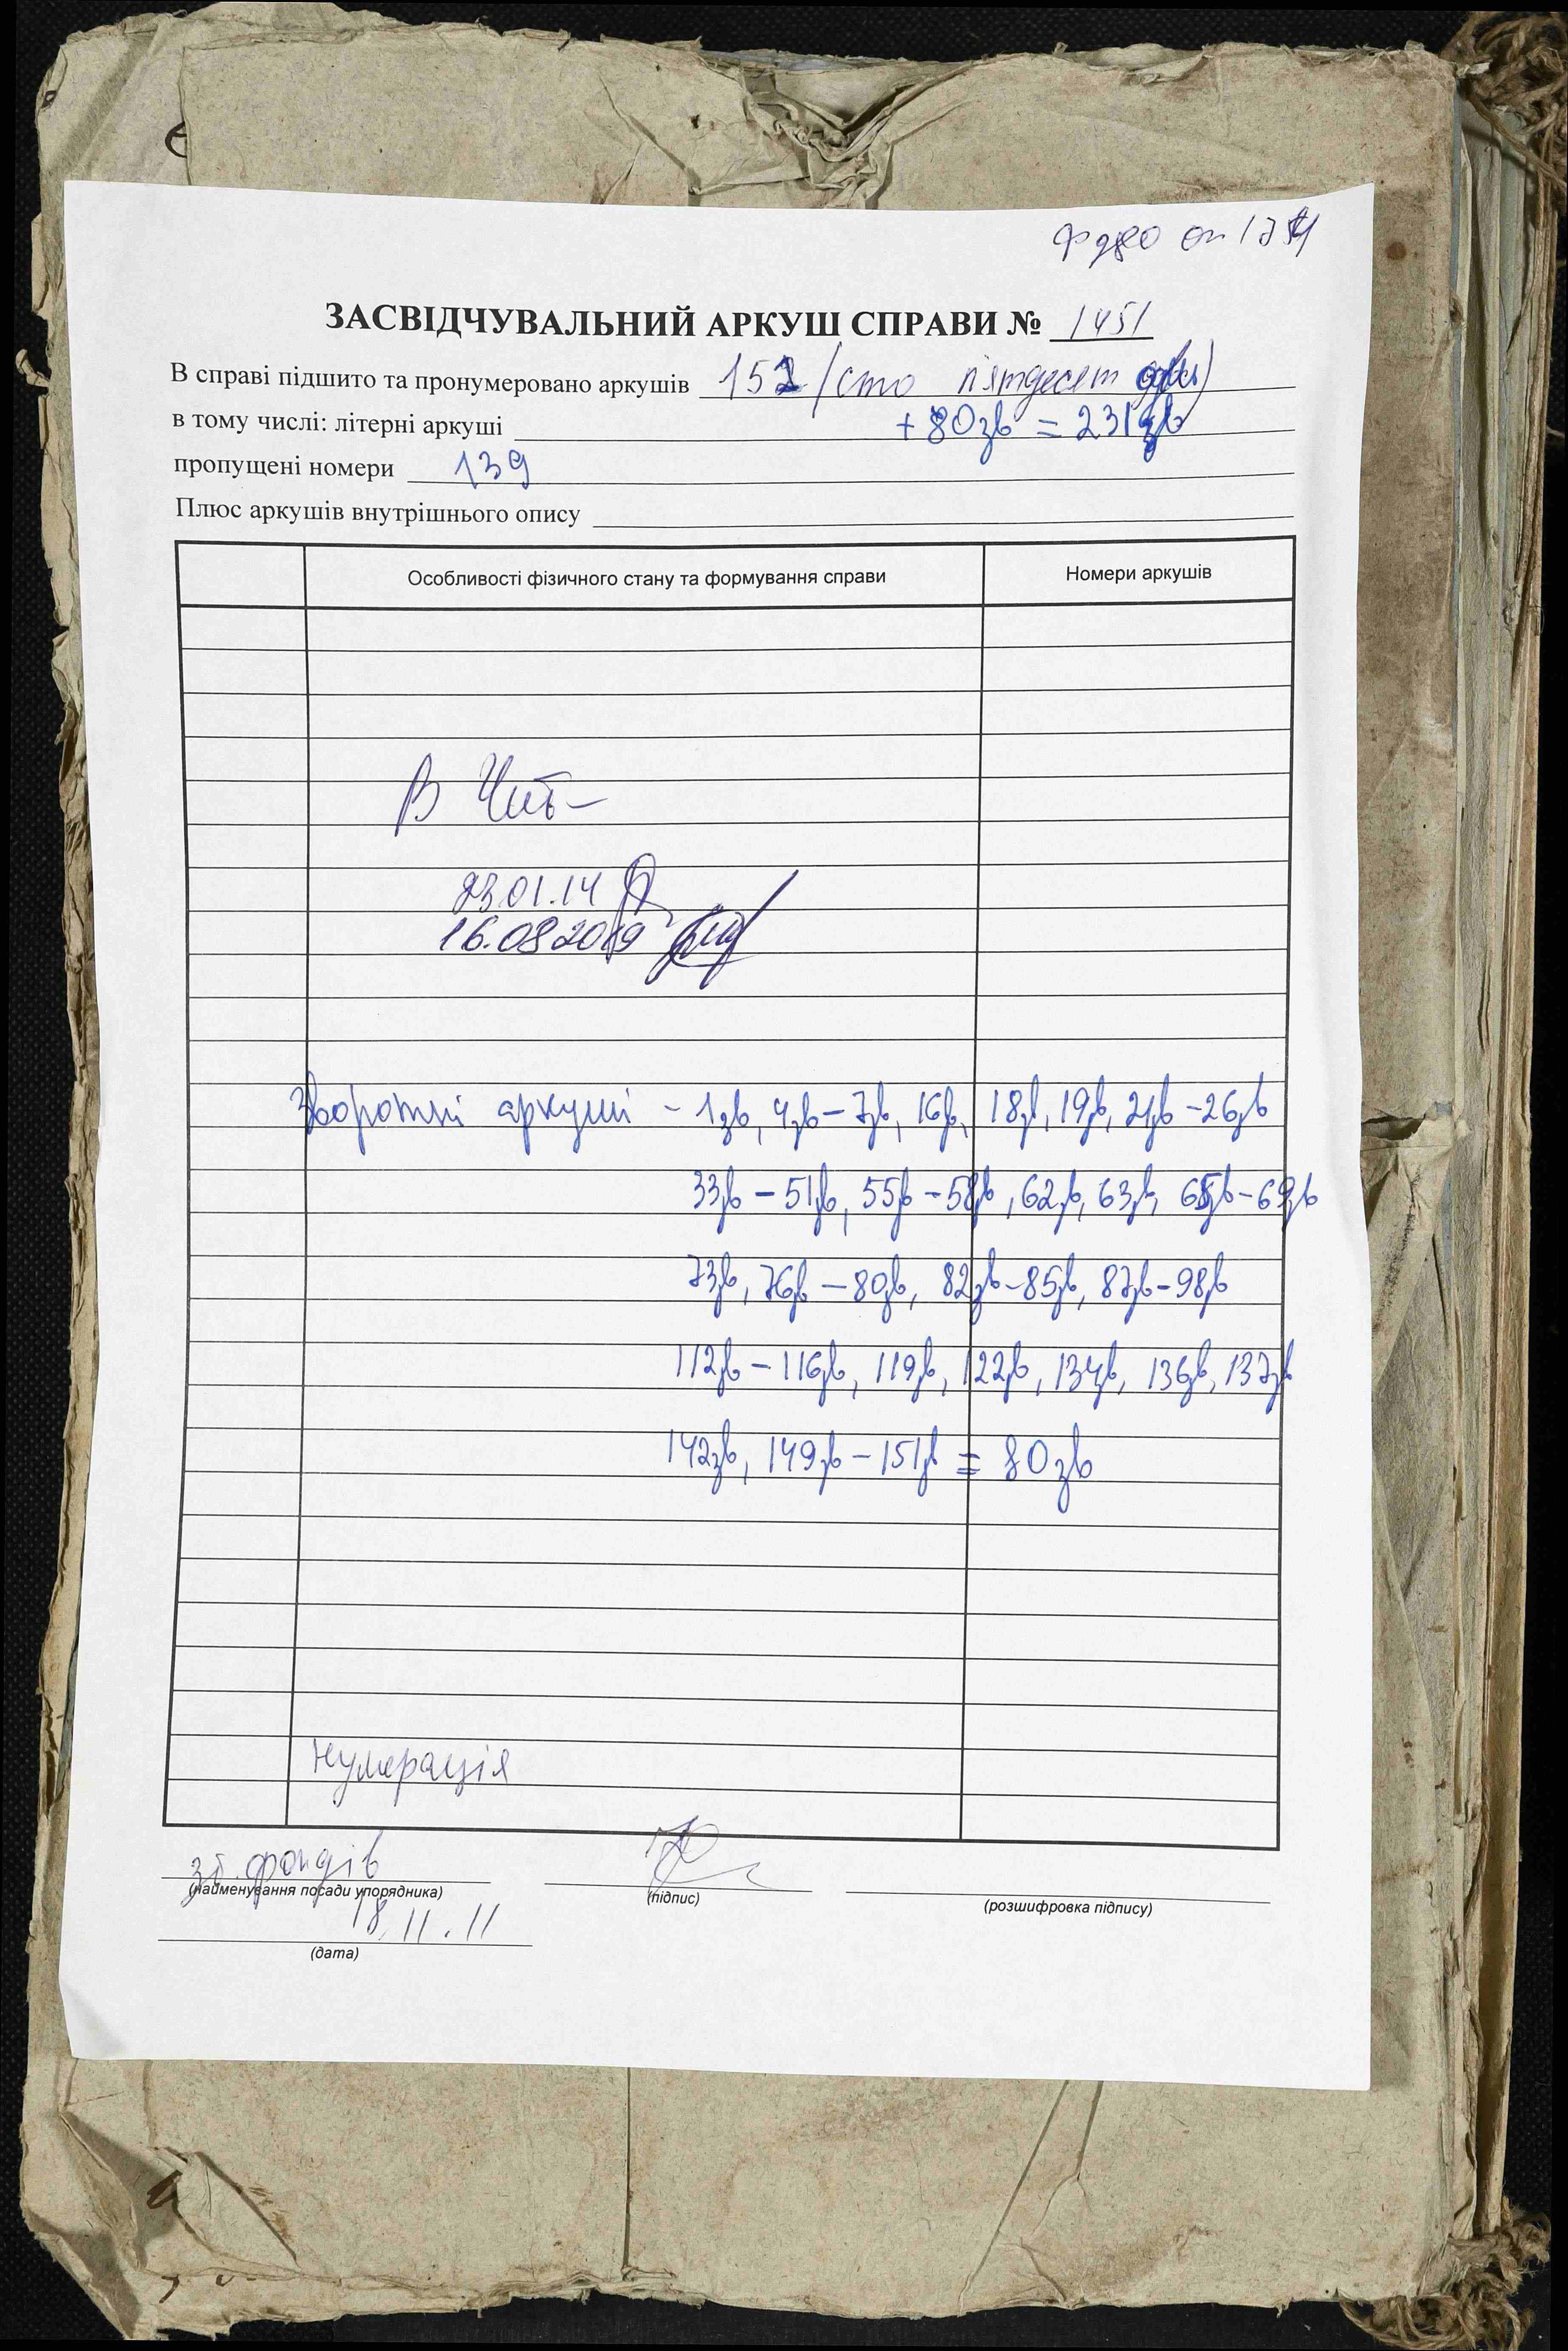 ф 980 оп 174
ЗАСВІДЧУВАЛЬНИЙ АРКУШ СПРАВИ № 1451
В справі підшито та пронумеровано аркушів 151 (сто пятдесят
в тому числі: літерні аркуші + 80зв = 231
пропущені номери 139
Плюс аркушів внутрішнього опису
Особливості фізичного стану та формування справи Номери аркушів
В Чит-
23.01.14
16.08 2019
Зворотні аркуші - 1зв, 4зв-7зв, 16зв, 18зв, 19зв, 21зв-26зв
33зв-51зв, 55зв-58зв, 62зв, 63зв, 65зв-69зв
73зв, 76зв-80зв, 82зв-85зв, 87зв-98зв
112зв-116зв, 119зв, 122зв, 134зв, 136зв, 137зв
142зв, 149зв-151зв = 80зв
нумерація
зб. фондів
(найменування посади упорядника) (підпис) (розшифровка підпису)
18.11.11
(дата)